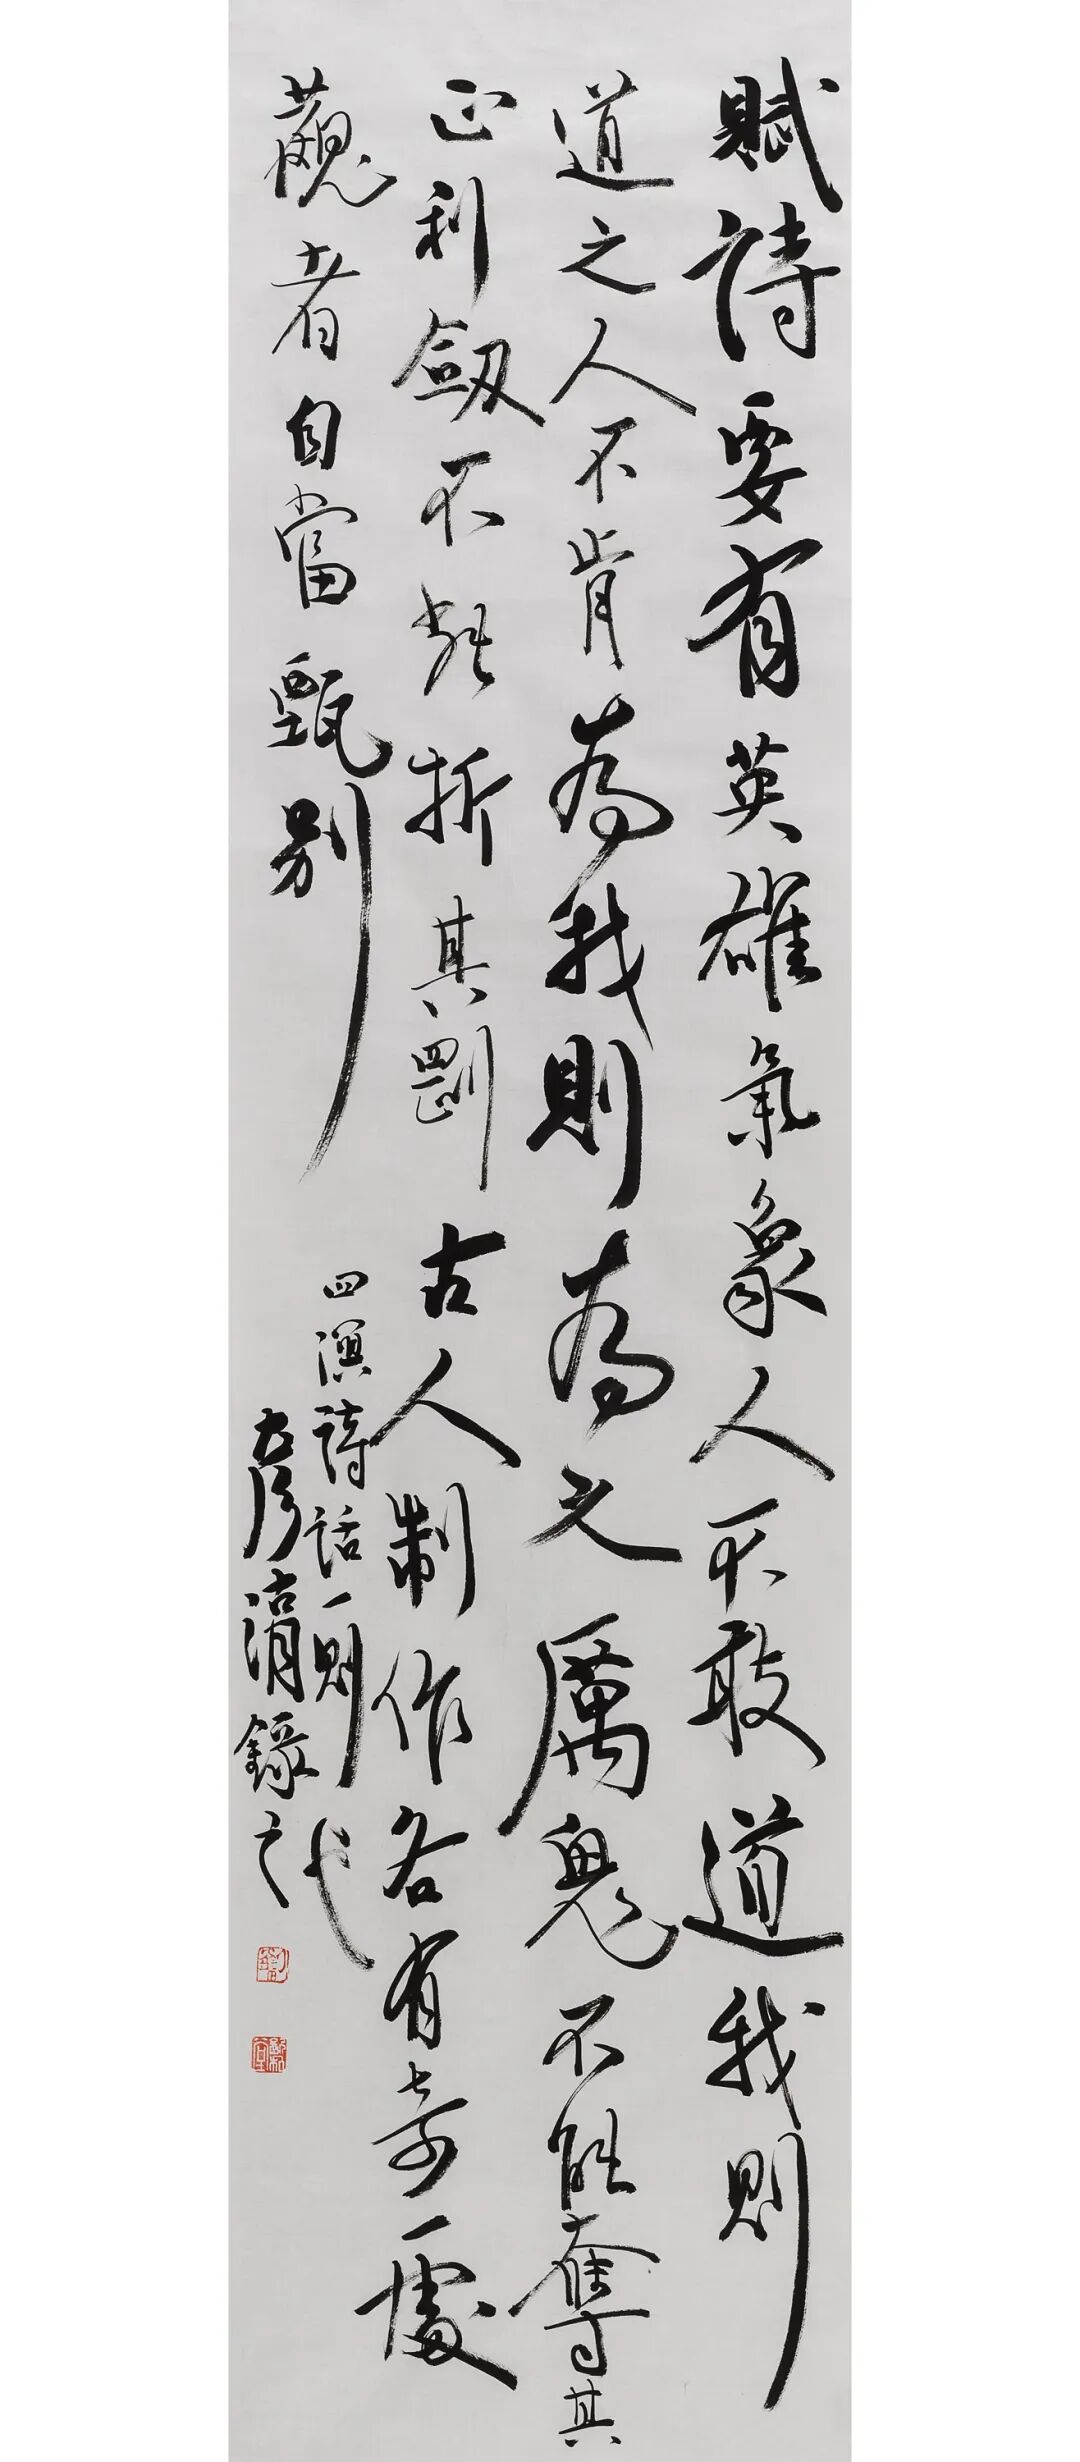 賦詩要有英雄氣象人不敢道我則
道之人不肯為我則為之厲鬼不能奪其
正利劔不能折其剛古人制作各有奇處
觀者自當甄別
四溟詩話一則
彥湖錄之